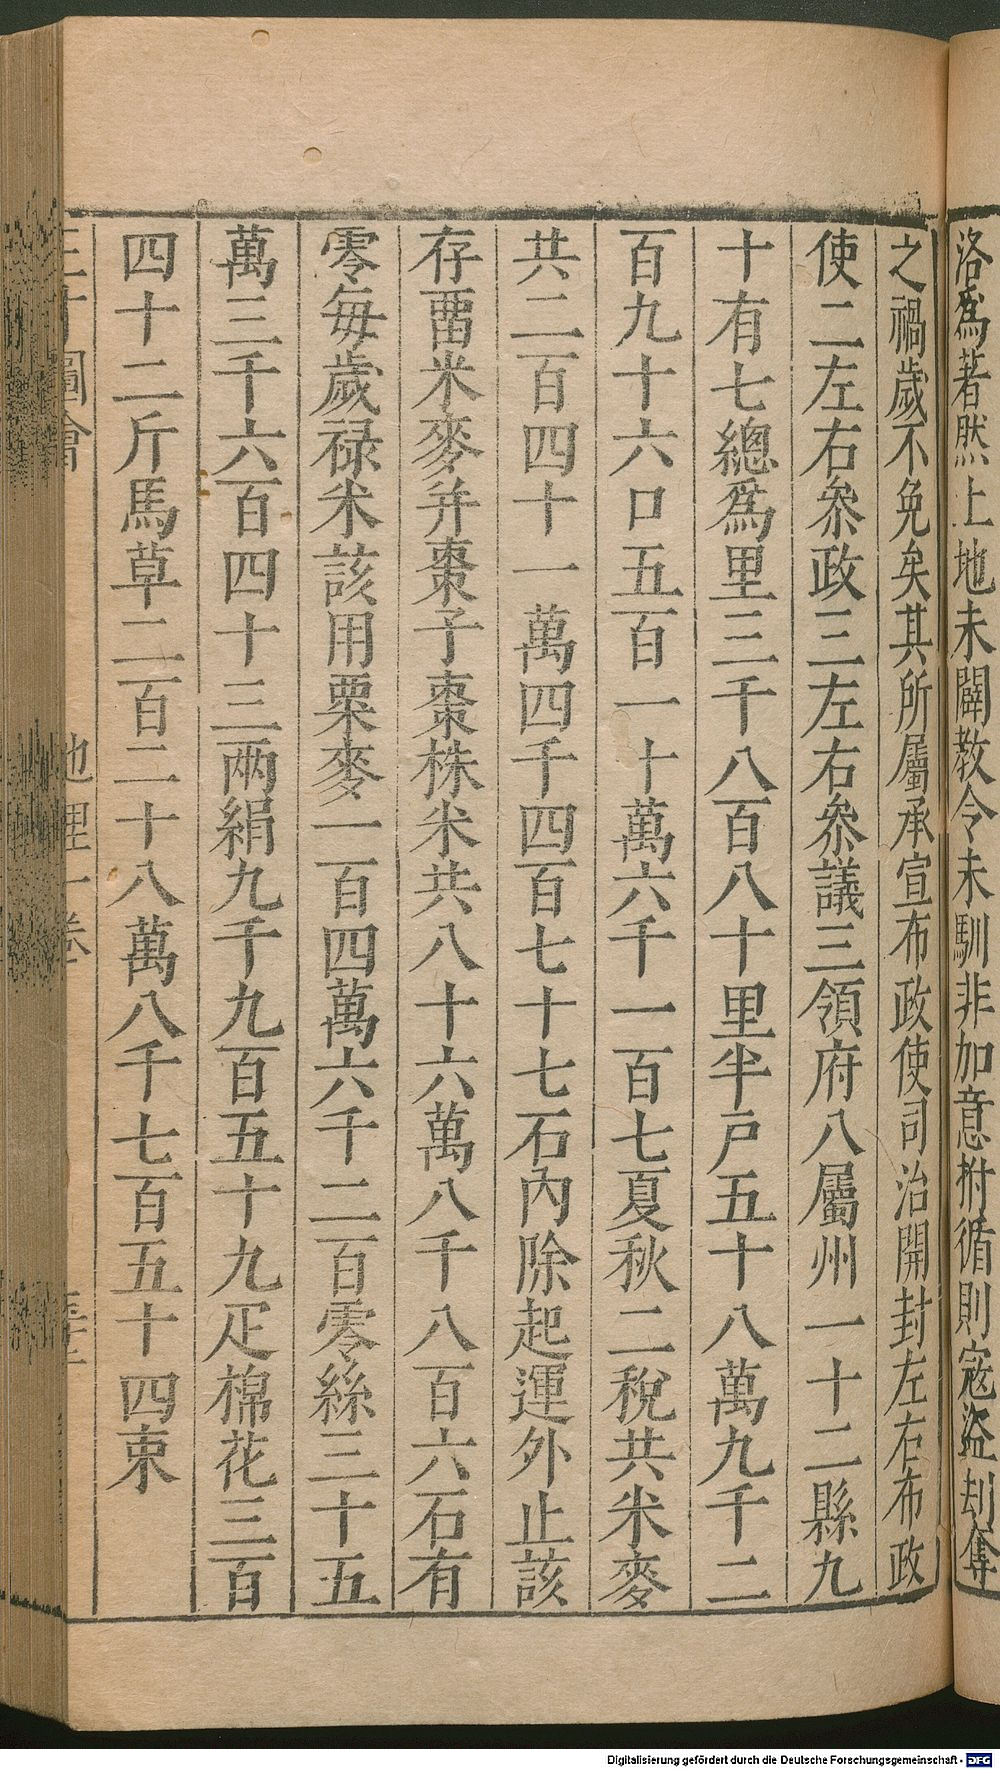 洛爲著然上地未闢教令未馴非加意拊循則寇盜刦奪
之禍歲不免矣其所屬承宣布政使司治開封左右布政
使二左右叅政三左右叅議三領府八屬州一十二縣九
十有七總爲里三千八百八十里半戸五十八萬九千二
百九十六口五百一十萬六千一百七夏秋二稅共米麥
共二百四十一萬四千四百七十七石內除起運外止該
存畱米麥并棗子棗株米共八十六萬八千八百六石有
零每歲禄米該用粟麥一百四萬六千二百零絲三十五
萬三千六百四十三两絹九千九百五十九疋棉花三百
四十二斤馬草二百二十八萬八千七百五十四束
三才圖會 地理一卷
Digitalisierung gefördert durch die Deutsche Forschungsgemeinschaft - DFG